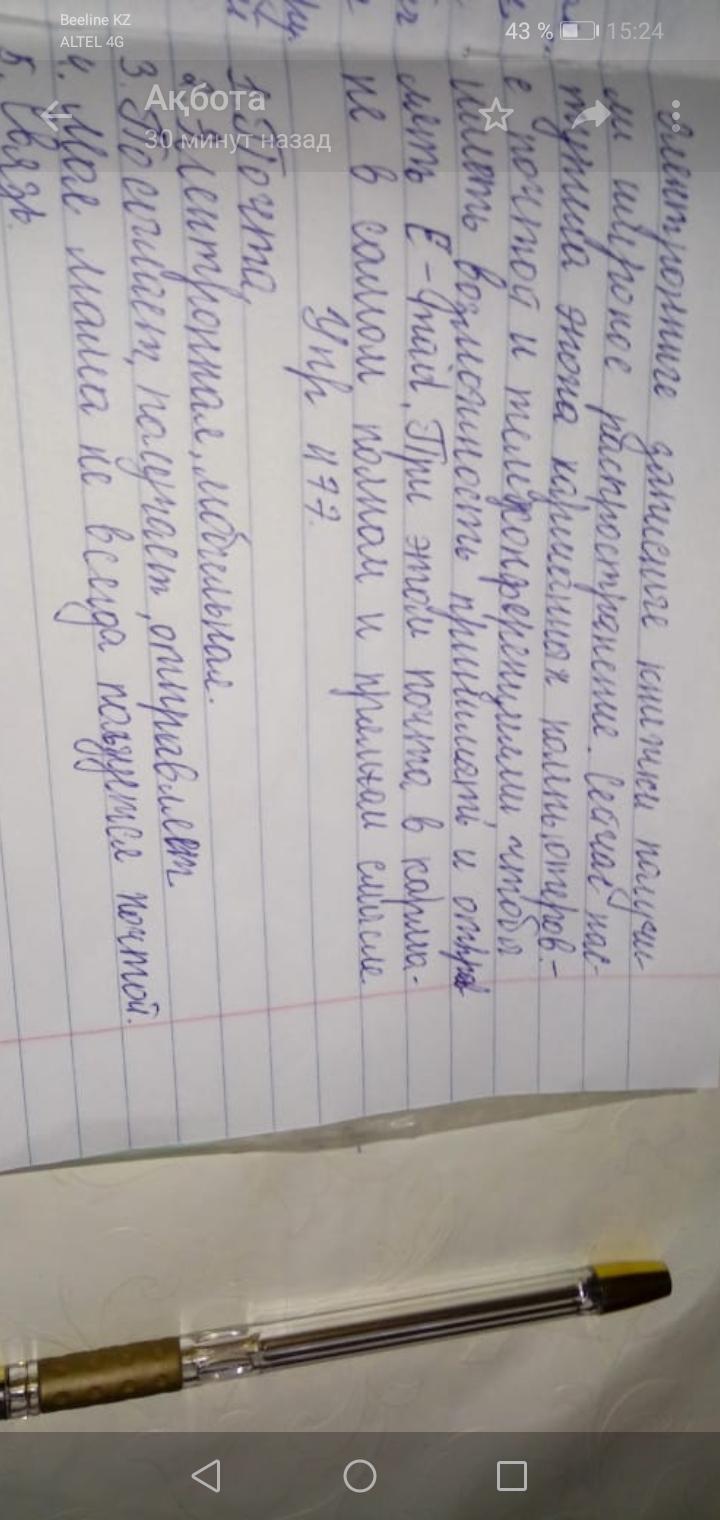 Beeline KZ
ALTEL 4G
43 %
15:24
Ақбота
30 минут назад
электронные записные книжки получи-
ли широкое распространение. Сейчас нас-
тупила эпоха карманных комп., отправ.-
е почтой и телеконференциями чтобы
иметь возможность принимать и отправ
лять E-mail. При этом почта в карма-
не в самом полном и прямом смысле
Упр 477.
1. Почта,
2. Электронная, мобильная.
3. Посылает, получает, отправляет
4. Моя мама не всегда пользуется почтой.
5. Связь.